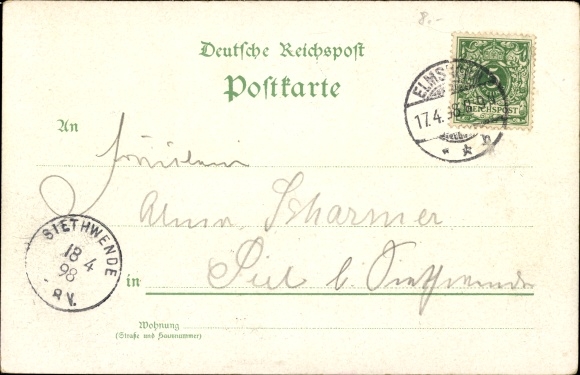 8.-
Deutsche Reichspost
Postkarte
ELMSHORN
17.4.98.
5
REICHSPOST
An
Fräulein
Alma Scharmer
in Siel b. Siethwende
SIETHWENDE
18 4
98
8 V.
Wohnung
(Straße und Hausnummer)